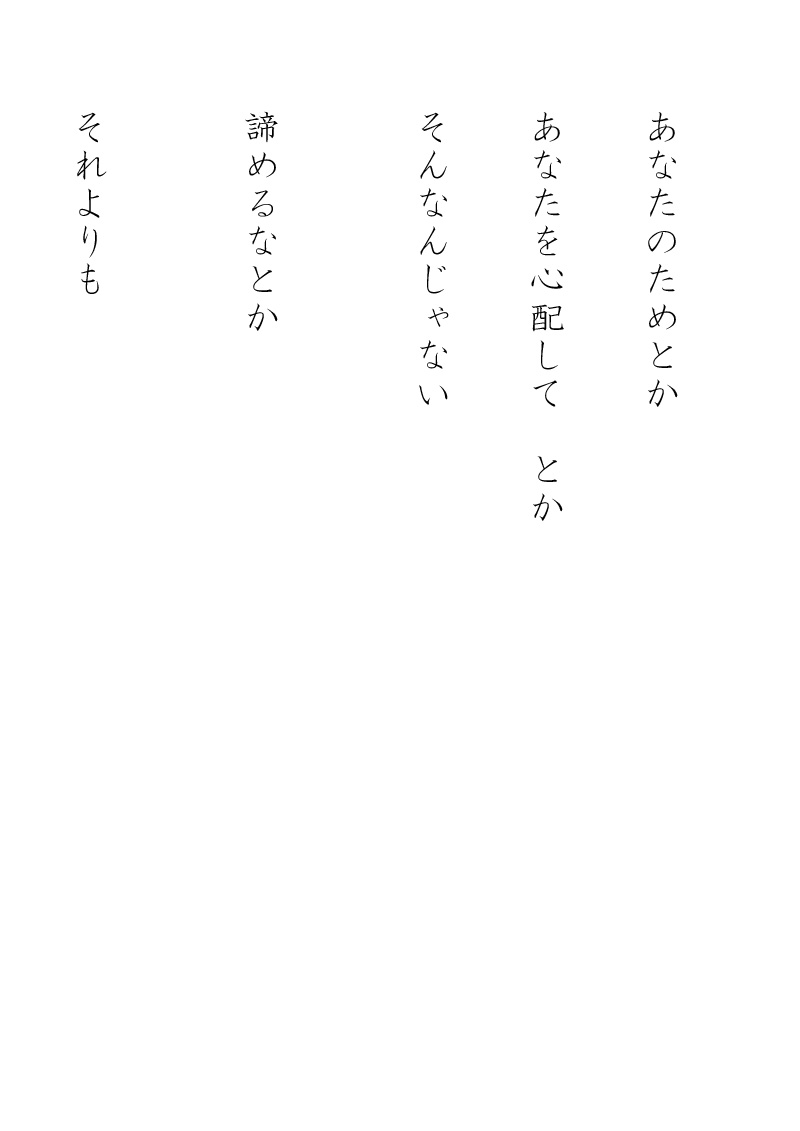 あなたのためとか
あなたを心配して　とか
そんなんじゃない
諦めるなとか
それよりも